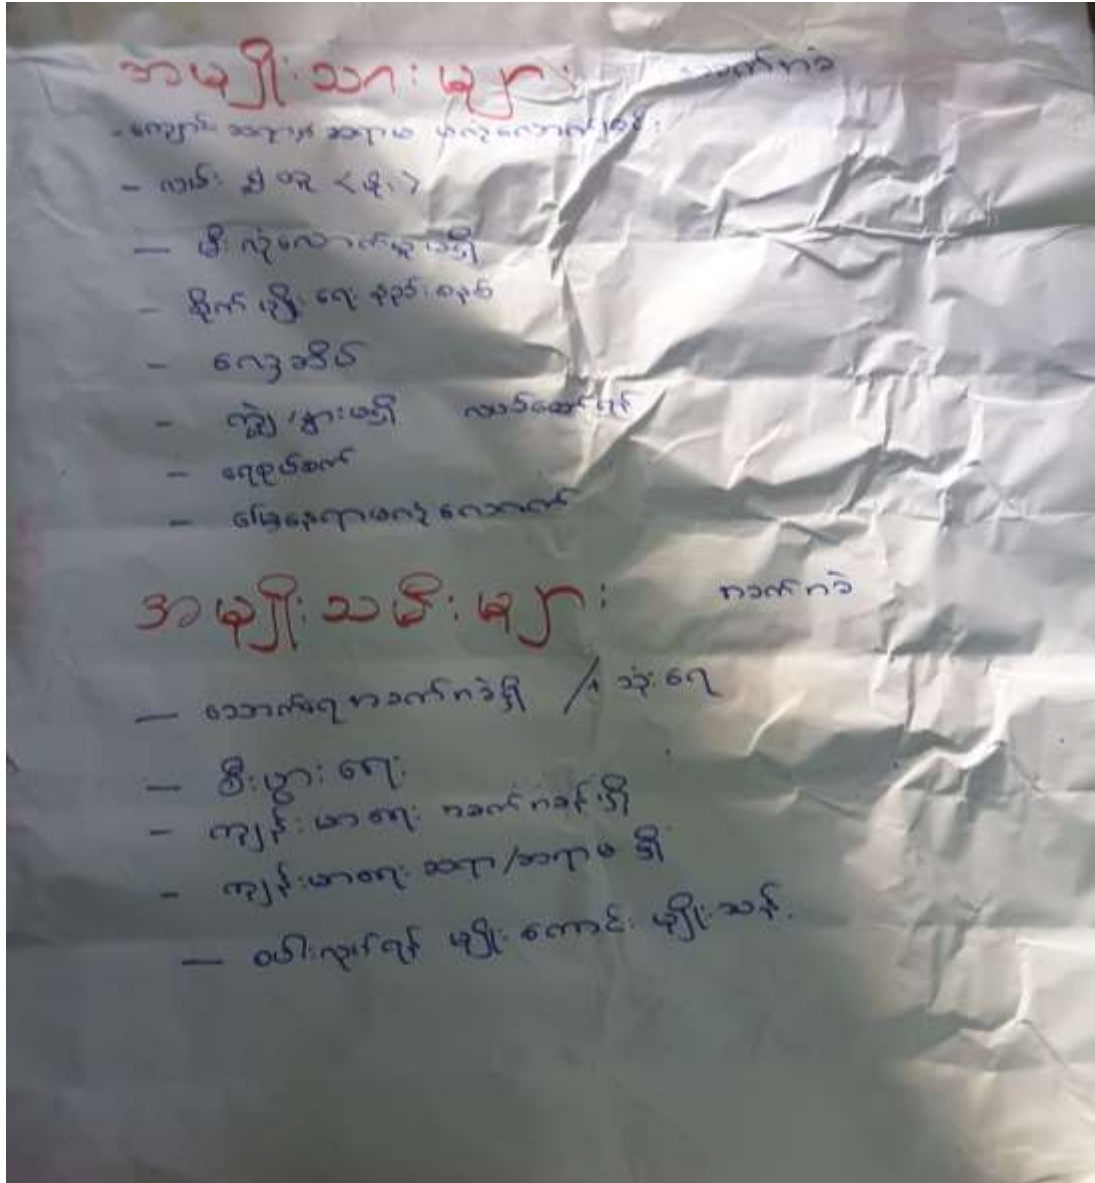 အမျိုးသားများ အခက်ကခဲ
- ကျောင်း ဆရာ/ ဆရာမ မလုံလောက်ခြင်း
- လမ်း
- မီးလုံလောက်မှုမရှိ
- စိုက်မျိုးရေး နည်းစနစ်
- လေဒူသိပ်
- ကျွဲ/နွားမရှိ လယ်ထောင်ရန်
- ရေစုပ်စက်
- မြေနေရာမလုံလောက်
အမျိုးသမီးများ ကခက်ကခဲ
- သောက်ရေ ကခက်ကခဲရှိ / သုံးရေ
- စီးပွားရေး
- ကျန်းမာရေး ကခက်ကခန်ရှိ
- ကျန်းမာရေး ဆရာ/ဆရာမ ရှိ
- စပါးလုပ်ရန် မျိုးကောင်း မျိုးသန့်